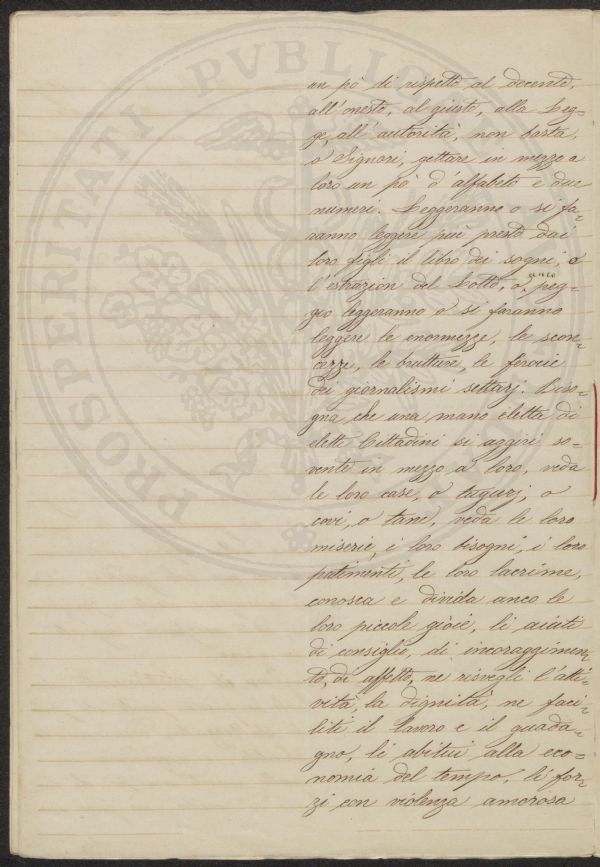 PROSPERITATI PVBLICAE
un pò di rispetto al decente,
all'onesto, al giusto, alla Leg=
ge, all'autorità, non basta,
o Signori, gettare in mezzo a
loro un pò d'alfabeto e due
numeri. Leggeranno o si fa=
ranno leggere più presto dai
loro figli il libro dei sogni, o
l'estrazion del Lotto, o, peg=
anco
gio leggeranno o si faranno
leggere le enormezze, le sconc=
cezze, le brutture, le ferocie
dei giornalismi settarj. Biso=
gna che una mano eletta di
eletti Cittadini si aggiri so=
vente in mezzo a loro, veda
le loro case, o tugurj, o
covi, o tane, veda le loro
miserie, i loro bisogni, i loro
patimenti, le loro lacrime,
conosca e divida anco le
loro piccole gioie, li aiuti
di consiglio, di incoraggimen=
to, di affetto, ne risvegli l'atti=
vità, la dignità, ne faci=
liti il lavoro e il guada=
gno, li abitui alla eco=
nomia del tempo, li for=
zi con violenza amorosa